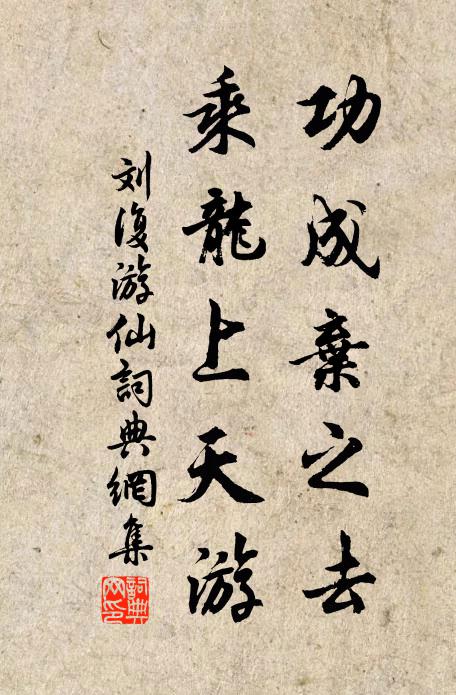 功成棄之去
乘龍上天游
刘復游仙詞典網集
詞典网印